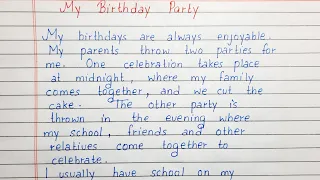 My Birthday Party
My birthdays are always enjoyable.
My parents throw two parties for
me. One celebration takes place
at midnight, where my family
comes together, and we cut the
cake. The other party is
thrown in the evening where
my school, friends and other
relatives come together to
celebrate.
I usually have school on my